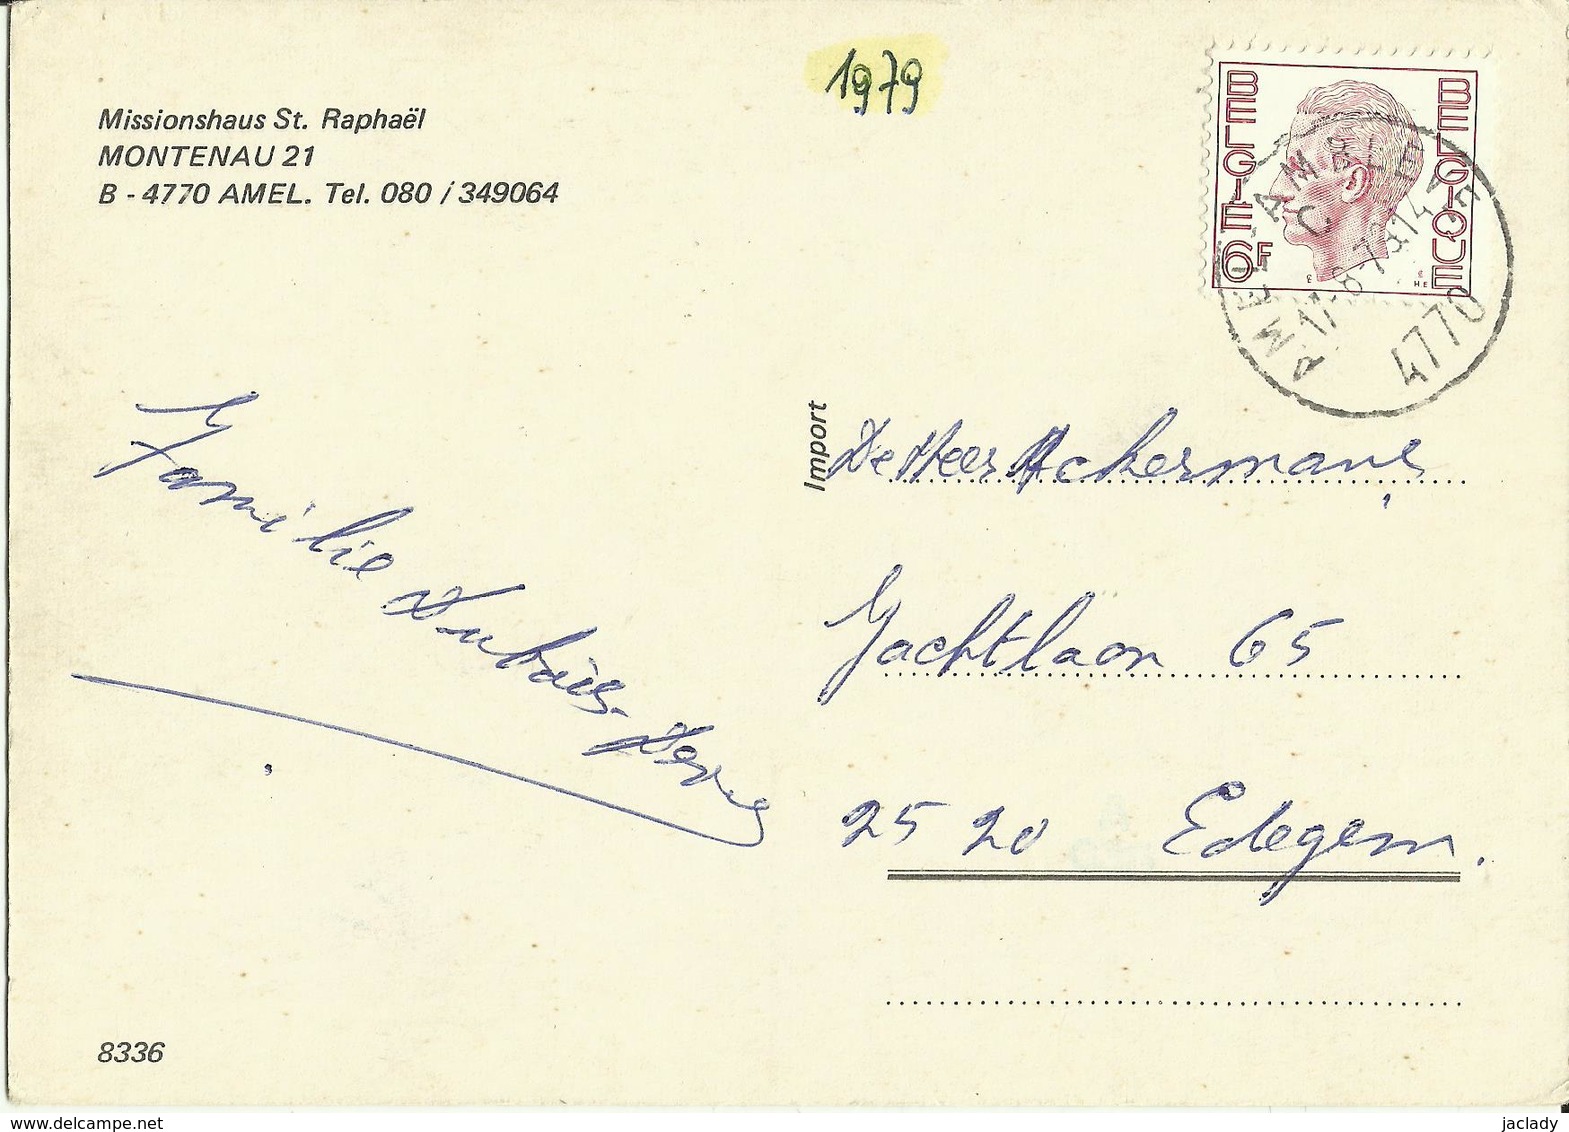 1979
Missionshaus St. Raphaël
MONTENAU 21
B - 4770 AMEL. Tel. 080 / 349064
BELGIE 6F
BELGIQUE
AMEL AMBLEVE
C
17-8-79.14
4770
Import
De Heer Ackermans,
Jachtlaan 65
2520 Edegem.
Familie Dubois-
8336
www.delcampe.net
jaclady